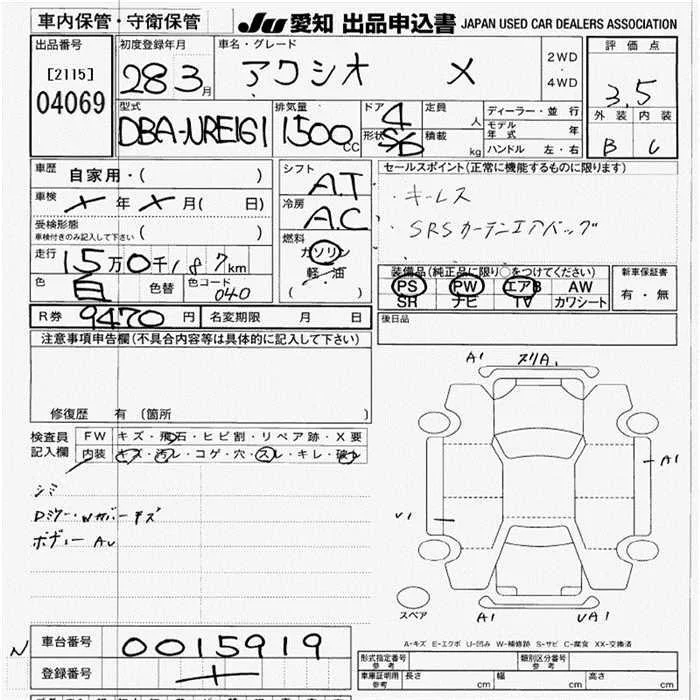 車内保管・守衛保管 JU 愛知 出品申込書 JAPAN USED CAR DEALERS ASSOCIATION
出品番号 初度登録年月 車名・グレード 2WD 評価点
[2115] 28 3月 アクシオ X ・ 3.5
04069 4WD 外装 内装
型式 排気量 ドア 4 定員 人 ディーラー・並行 B C
DBA-NRE161 1500cc 形状 SD 積載 kg モデル年式 年
ハンドル 左・右
車歴 自家用・( ) シフト A.T セールスポイント(正常に機能するものに限ります)
車検 メ年メ月( 日) 冷房 A.C ・キーレス
受検形態 ・SRSカーテンエアバッグ
車検付きのみ記入して下さい ( ) 燃料
走行 15万0千187km ガソリン 装備品(純正品に限り○をつけてください) 新車保証書
色 白 色替 色コード 040 軽・油 PS PW エアB AW 有・無
( ) SR ナビ TV カワシート
R券 9470円 名変期限 月 日 後日品
注意事項申告欄(不具合内容等は具体的に記入して下さい)
A1 スリA1
修復歴 有 (箇所 )
検査員 FW キズ・飛石・ヒビ割・リペア跡・X要
記入欄 内装 キズ・汚レ・コゲ・穴・スレ・キレ・破レ A1
シミ
Dミラー・Wカバーキズ U1
ボディー AU
スペア
A1 UA1
A-キズ E-エクボ U-凹み W-補修跡 S-サビ C-腐食 XX-交換済
N 車台番号 0015919
登録番号 型式指定番号 参考 類別区分番号 参考
車庫証明用 参考 長さ cm 幅 cm 高さ cm